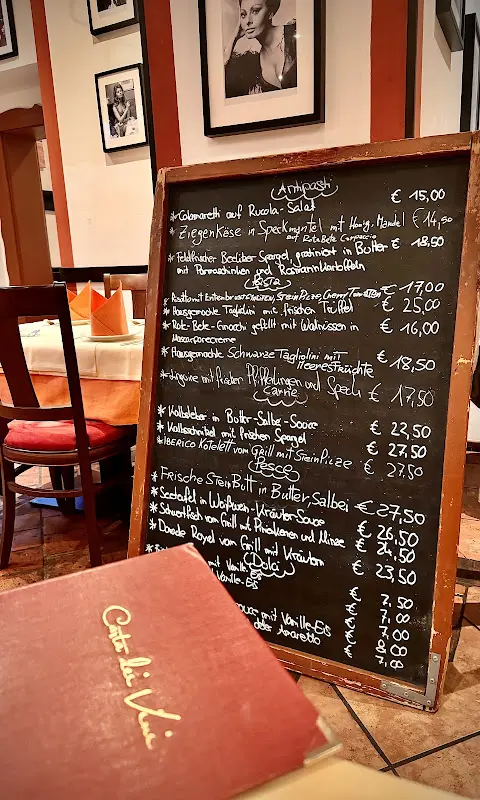 Antipasti
* Calamaretti auf Rucola-Salat € 15,00
* Ziegenkäse in Speckmantel mit Honig, Mandel € 14,90
auf Rote Bete Carpaccio
* Feldfrischer Beelitzer Spargel, gratiniert in Butter € 18,50
mit Parmaschinken und Rosmarinkartoffeln
Pasta
* Risotto mit Entenbrust SteinPilze, Cherry Tomaten € 17,00
* Hausgemachte Tagliolini mit frischen Trüffel € 25,00
* Rote-Bete-Gnocchi gefüllt mit Walnüssen in € 16,00
Mascarponecreme
* Hausgemachte Schwarze Tagliolini mit € 18,50
Meeresfrüchte
* Linguine mit frischen Pfifferlingen und Speck € 17,50
Carne
* Kalbsleber in Butter-Salbei-Sauce € 22,50
* Kalbsschnitzel mit frischen Spargel € 27,50
* IBERICO Kotelett vom Grill mit SteinPilze € 27,50
Pesce
* Frische SteinButt in Butter, Salbei € 27,50
* Seeteufel in Weißwein-Kräuter-Sauce € 26,50
* Schwertfisch vom Grill mit Prinzessinen und Minze € 24,50
* Dorade Royal vom Grill mit Kräutern € 23,50
Dolci
mit Vanille-Eis € 7,50
Vanille-Eis € 7,00
€ 7,00
mit Vanille-Eis € 8,00
oder Amaretto € 7,00
Carta dei Vini